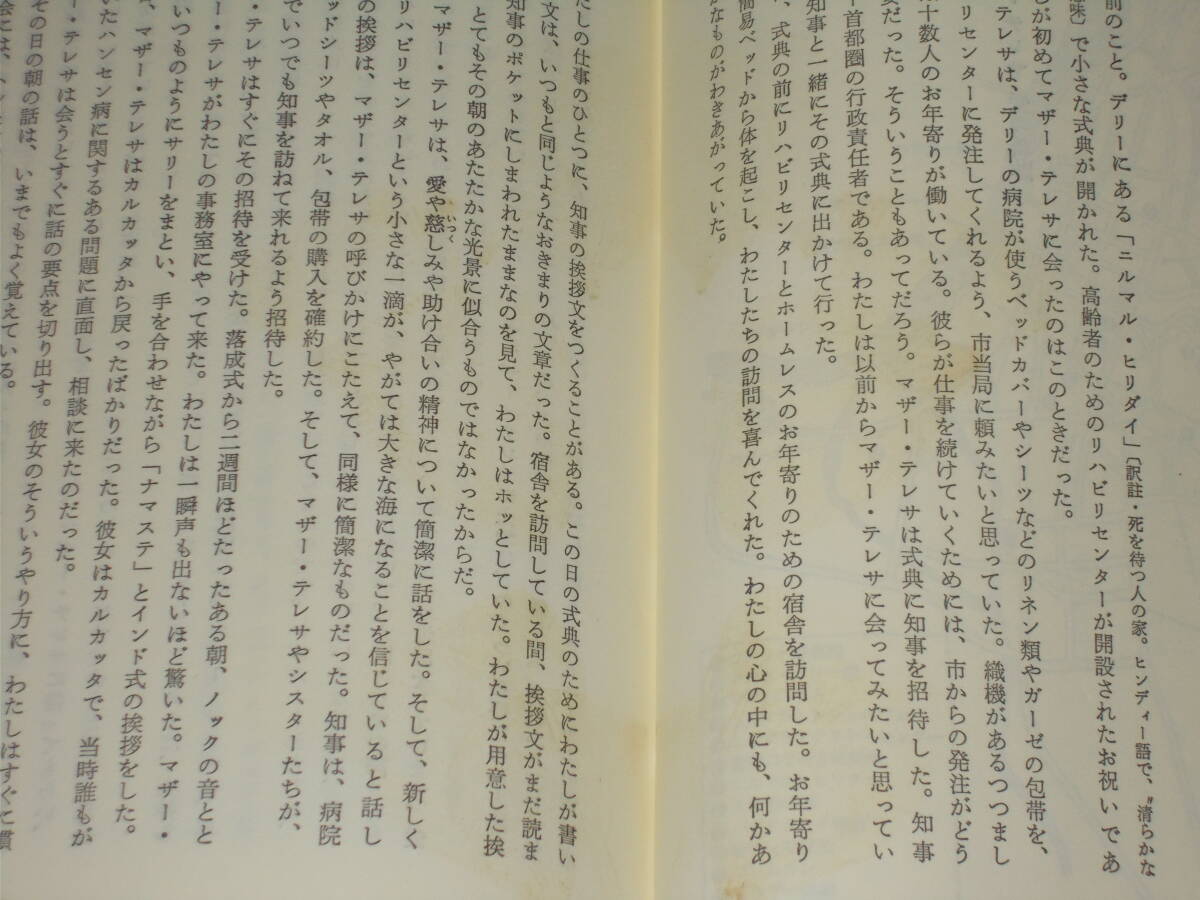 前のこと。デリーにある「ニルマル・ヒリダイ」〔訳註・死を待つ人の家。ヒンディー語で、〝清らかな
味〕で小さな式典が開かれた。高齢者のためのリハビリセンターが開設されたお祝いであ
しが初めてマザー・テレサに会ったのはこのときだった。
テレサは、デリーの病院が使うベッドカバーやシーツなどのリネン類やガーゼの包帯を、
リセンターに発注してくれるよう、市当局に頼みたいと思っていた。織機があるつつまし
十数人のお年寄りが働いている。彼らが仕事を続けていくためには、市からの発注がどう
だった。そういうこともあってだろう。マザー・テレサは式典に知事を招待した。知事
首都圏の行政責任者である。わたしは以前からマザー・テレサに会ってみたいと思ってい
知事と一緒にその式典に出かけて行った。
、式典の前にリハビリセンターとホームレスのお年寄りのための宿舎を訪問した。お年寄り
簡易ベッドから体を起こし、わたしたちの訪問を喜んでくれた。わたしの心の中にも、何かあ
かなものがわきあがっていた。
たしの仕事のひとつに、知事の挨拶文をつくることがある。この日の式典のためにわたしが書い
文は、いつもと同じようなおきまりの文章だった。宿舎を訪問している間、挨拶文がまだ読ま
知事のポケットにしまわれたままなのを見て、わたしはホッとしていた。わたしが用意した挨
とてもその朝のあたたかな光景に似合うものではなかったからだ。
マザー・テレサは、愛や慈しみや助け合いの精神について簡潔に話をした。そして、新しく
リハビリセンターという小さな一滴が、やがては大きな海になることを信じていると話し
の挨拶は、マザー・テレサの呼びかけにこたえて、同様に簡潔なものだった。知事は、病院
ッドシーツやタオル、包帯の購入を確約した。そして、マザー・テレサやシスターたちが、
でいつでも知事を訪ねて来れるよう招待した。
・テレサはすぐにその招待を受けた。落成式から二週間ほどたったある朝、ノックの音とと
ー・テレサがわたしの事務室にやって来た。わたしは一瞬声も出ないほど驚いた。マザー・
いつものようにサリーをまとい、手を合わせながら「ナマステ」とインド式の挨拶をした。
、マザー・テレサはカルカッタから戻ったばかりだった。彼女はカルカッタで、当時誰もが
いたハンセン病に関するある問題に直面し、相談に来たのだった。
ー・テレサは会うとすぐに話の要点を切り出す。彼女のそういうやり方に、わたしはすぐに慣
その日の朝の話は、いまでもよく覚えている。